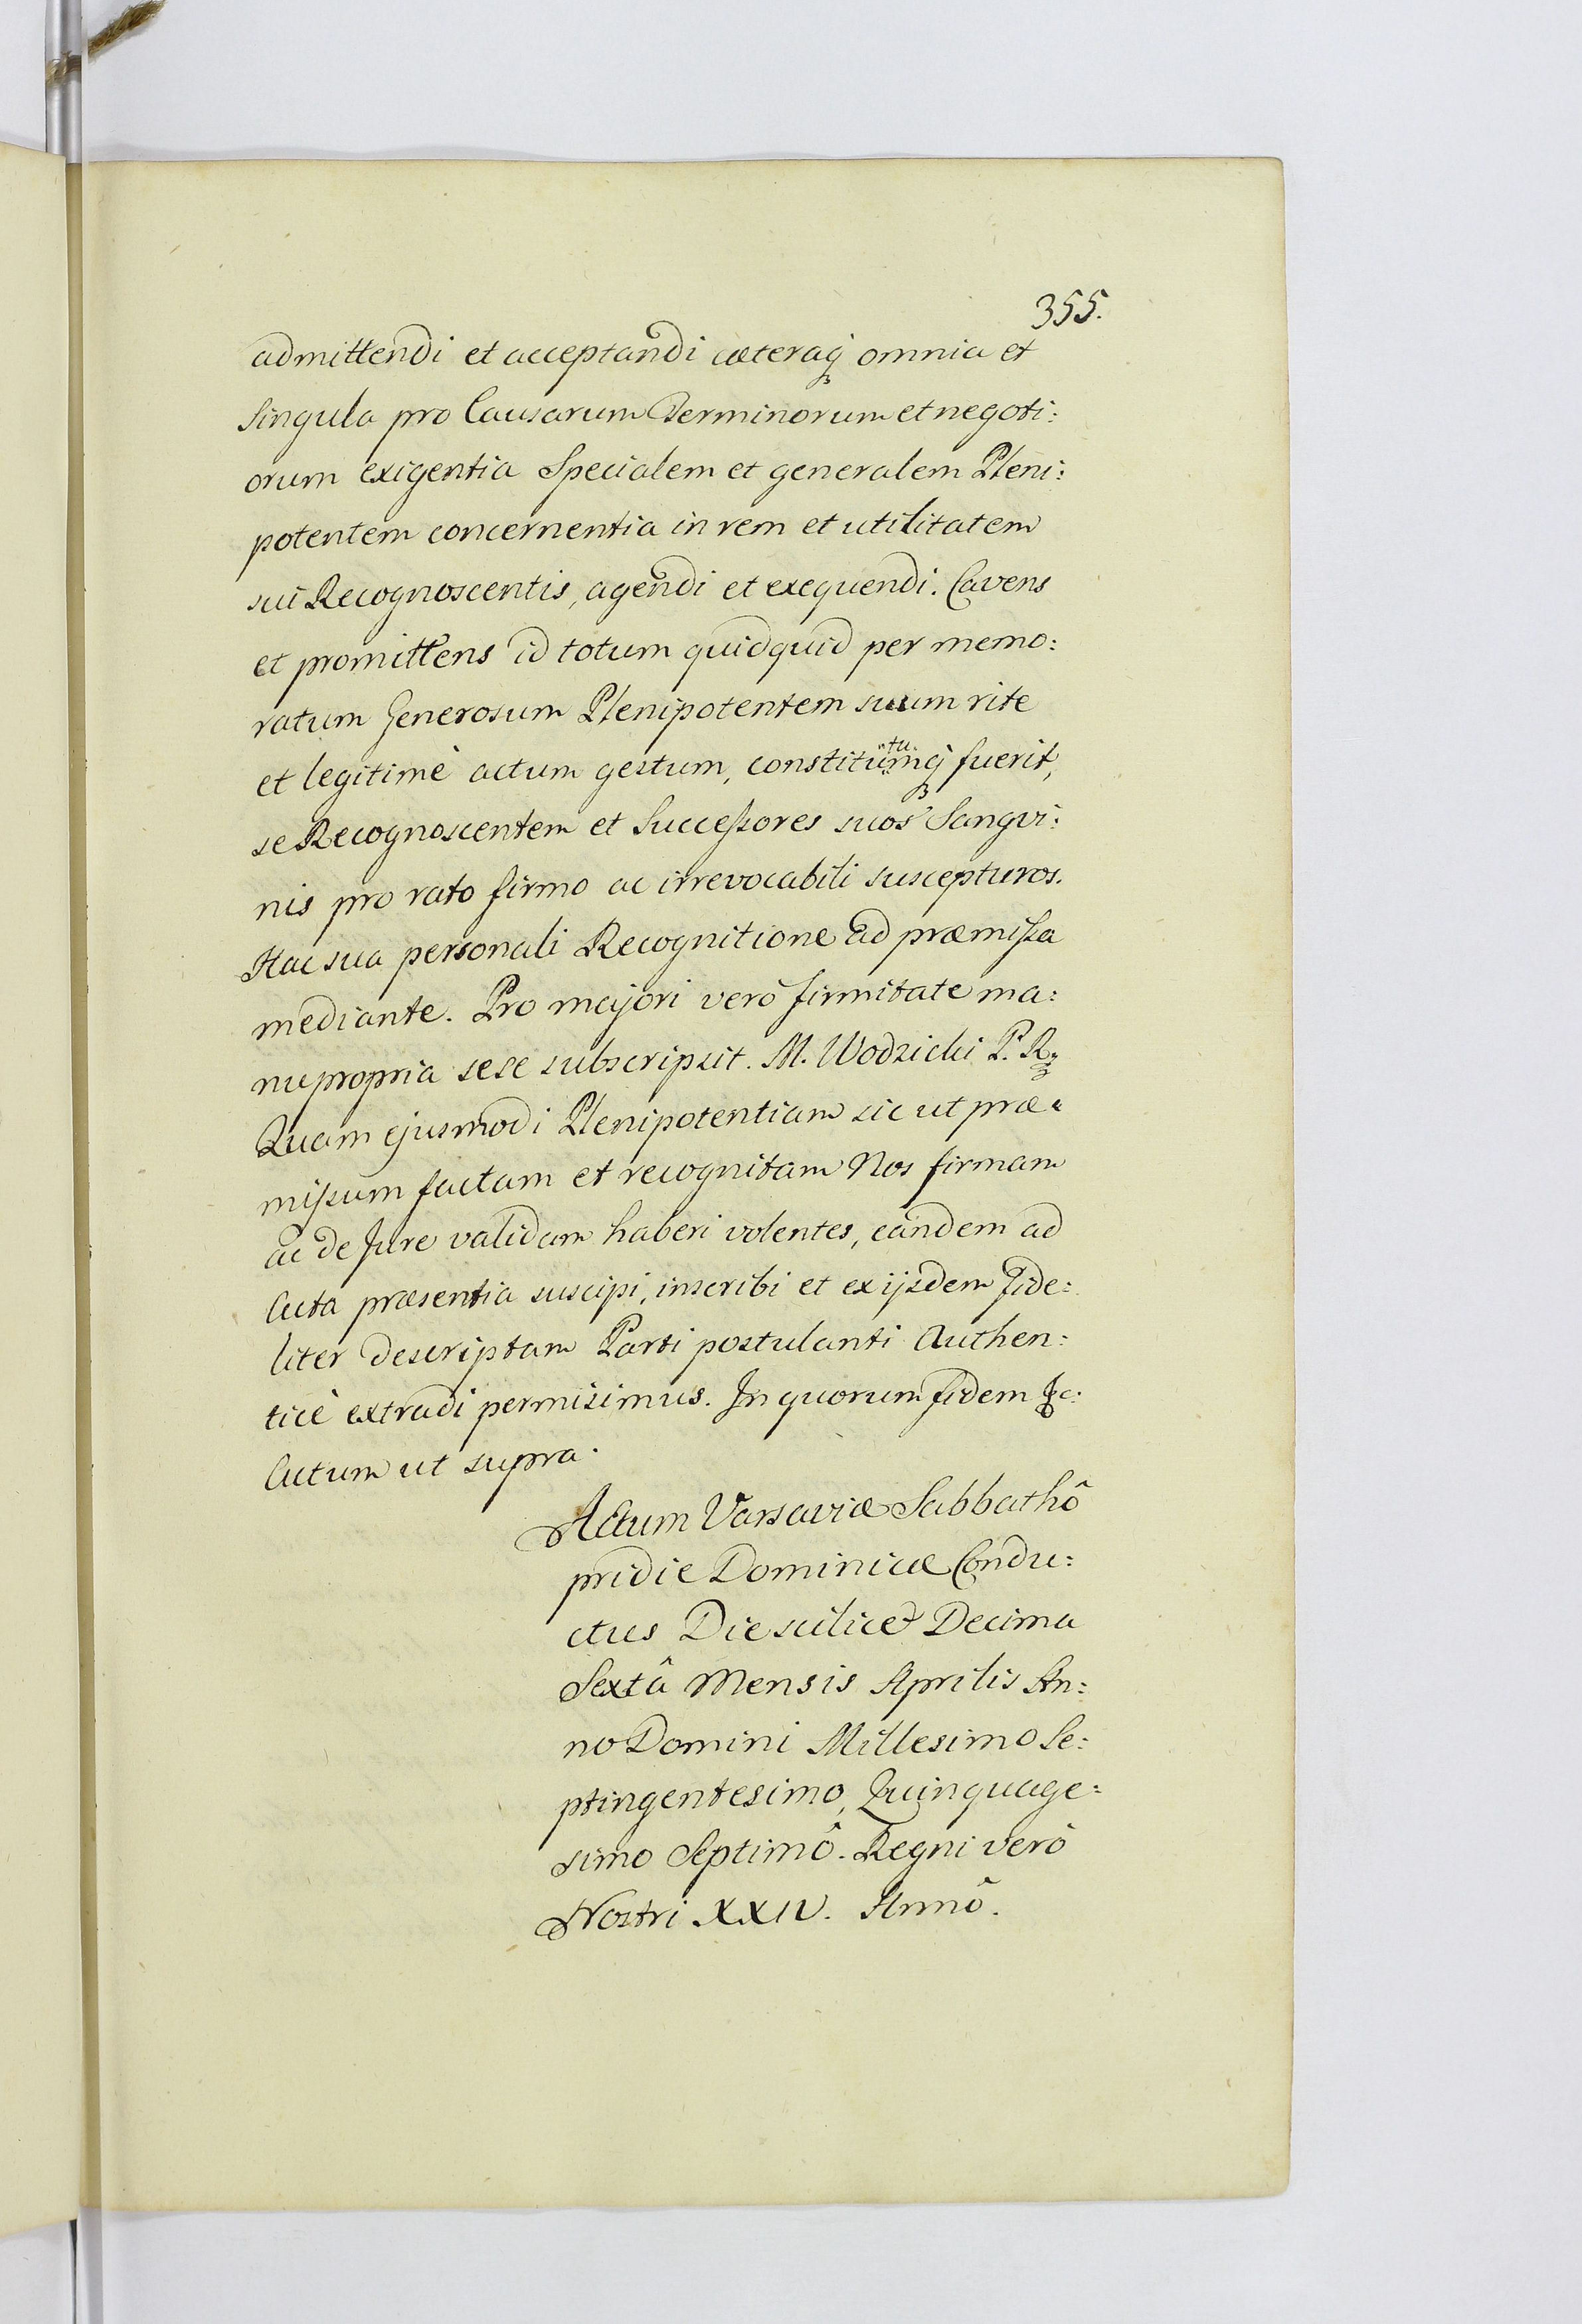 355.
admittendi et acceptandi cæteraq̷ omnia et
Singula pro Causarum Terminorum et negoti:
orum exigentia Specialem et generalem Pleni:
potentem concernentia in rem et utilitatem
sui Recognoscentis, agendi et exequendi. Cavens
et promittens id totum quidquid per memo:
ratum Generosum Plenipotentem suum rite
et legitimè actum gestum, constitutumq̷ fuerit,
se Recognoscentem et Successores suos Sangvi:
nis pro rato firmo ac irrevocabili suscepturos.
Hac sua personali Recognitione ad præmissa
mediante. Pro majori verò firmitate ma:
nu propria sese subscripsit. M. Wodzicki P. R.
Quam ejusmodi Plenipotentiam sic ut præ:
missum factam et recognitam Nos firmam
ac de Jure validam haberi volentes, eandem ad
Acta præsentia suscipi, inscribi et ex ijsdem fide:
liter descriptam Parti postulanti Authen:
ticè extradi permisimus. In quorum fidem &c:
Actum ut supra.
Actum Varsaviæ Sabbathô
pridie Dominicæ Condu:
ctus Die scilicet Decima
Sextâ Mensis Aprilis An:
no Domini Millesimo Se:
ptingentesimo, Quinquage:
simo Septimô. Regni verò
Nostri XXIV. Annô.